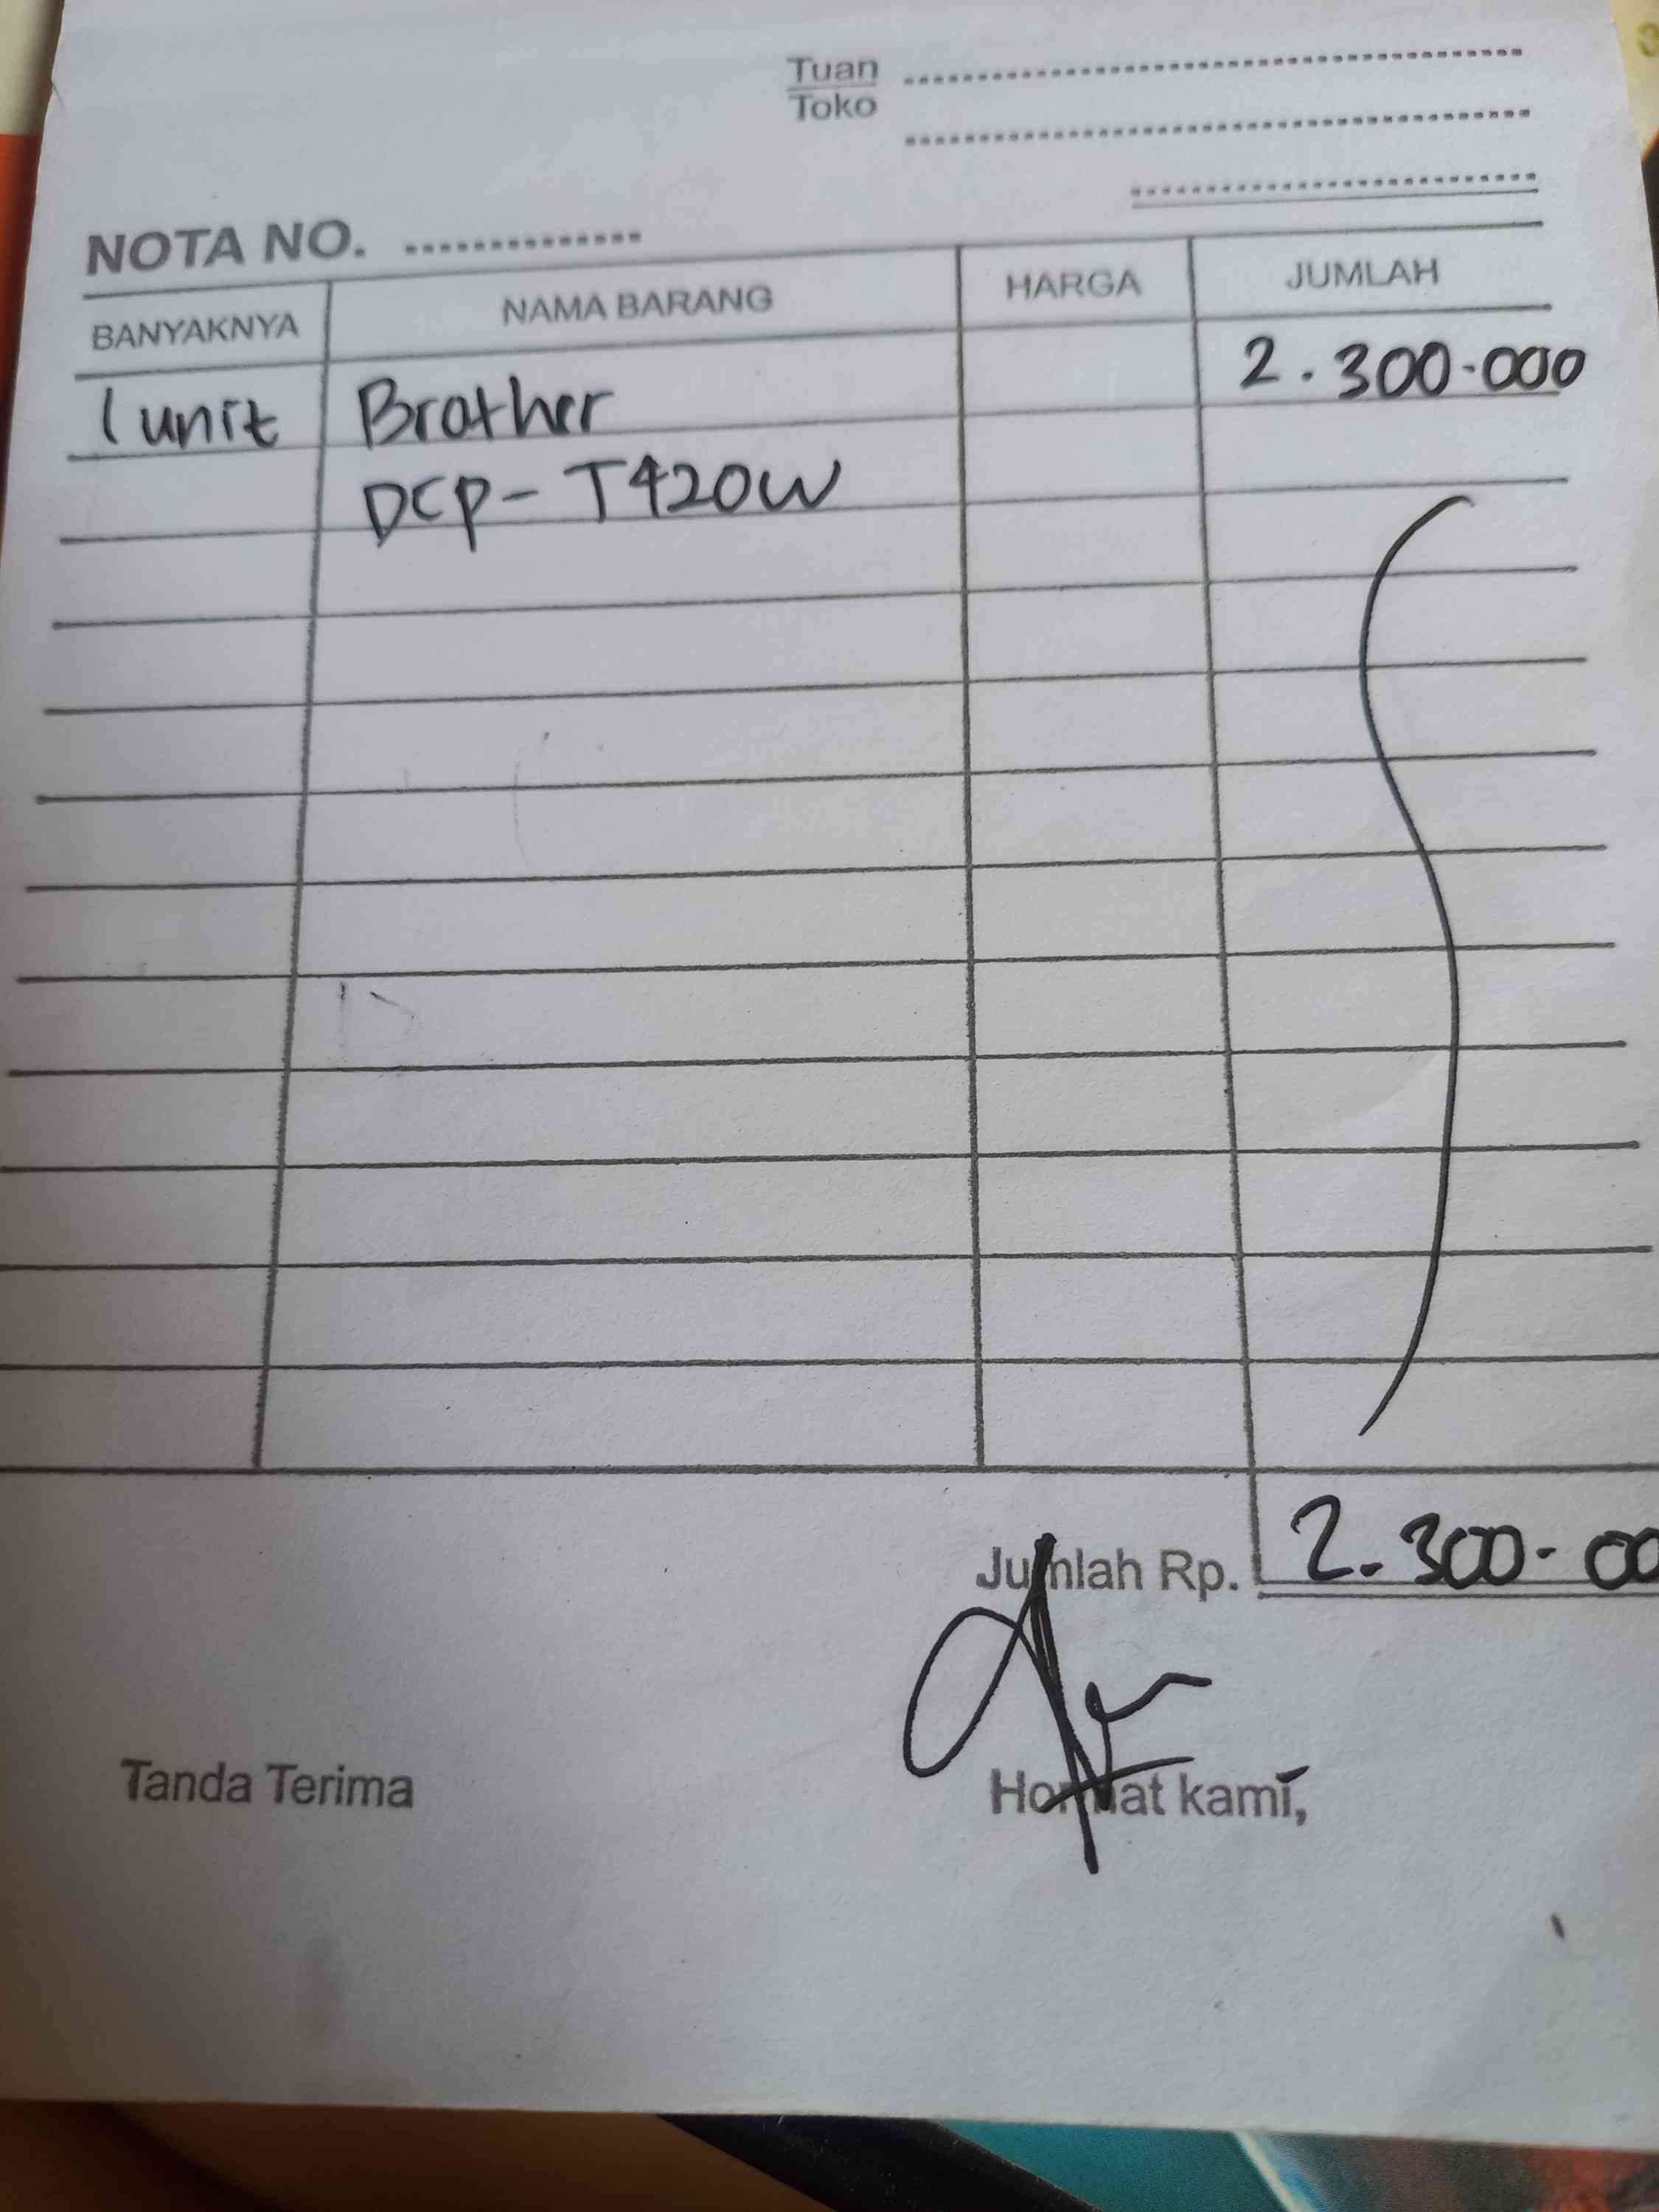 Tuan
Toko
NOTA NO.
BANYAKNYA NAMA BARANG HARGA JUMLAH
1 unit Brother 2.300.000
DCP-T420W
Jumlah Rp. 2.300.00
Tanda Terima Hormat kami,